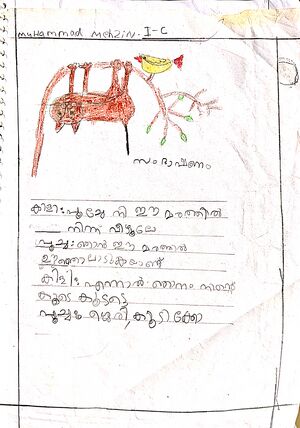 MuHammad MEHZIN. I-C
സംഭാഷണം
കിളി: പൂച്ചേ നീ ഈ മരത്തിൽ
നിന്ന് വീഴൂലേ
പൂച്ച: ഞാൻ ഈ മരത്തിൽ
ഊഞ്ഞാലാടുകയാണ്
കിളി: എന്നാൽ ഞാനും നിന്റെ
കൂടെ കൂടട്ടെ
പൂച്ച: കൂടിക്കോ